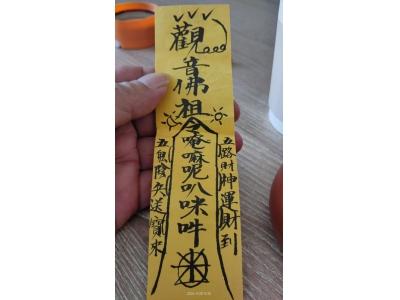 觀音佛祖令唵嘛呢叭咪吽
五路財神運財到
五鬼陰兵送寶來